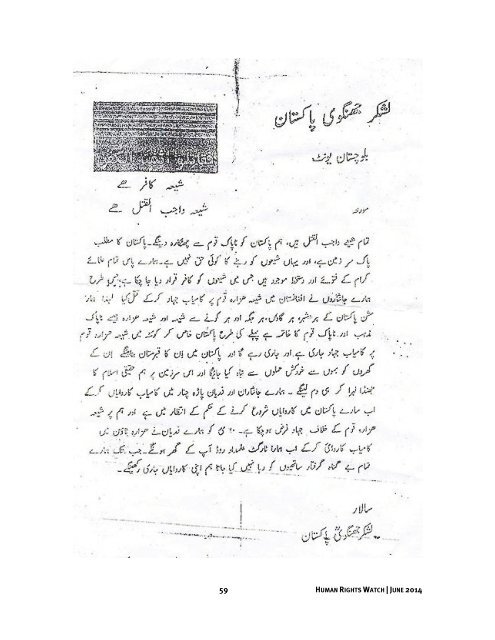 لشکر جھنگوی پاکستان
بلوچستان یونٹ
شیعہ کافر ھے
شیعہ واجب القتل ھے
مورخہ
تمام شیعے واجب القتل ہیں، ہم پاکستان کو ناپاک قوم سے چھٹکارہ دینگے۔پاکستان کا مطلب
پاک سر زمین ہے، اور یہاں شیعوں کو رہنے کا کوئی حق نہیں ہے۔ہمارے پاس تمام علمائے
کرام کے فتوئے اور دستخط موجود ہیں جس میں شیعوں کو کافر قرار دیا جا چکا ہے،جس طرح
ہمارے جانثاروں نے افغانستان میں شیعہ ھزارہ قوم پر کامیاب جہاد کرکے قتل کیا لہذا ہمارا
مشن پاکستان کے ہر شہر، ہر گاؤں،ہر جگہ اور ہر کونے سے شیعہ اور شیعہ ھزارہ جیسے ناپاک
مذہب اور ناپاک قوم کا خاتمہ ہے پہلے کی طرح پاکستان خاص کر کوئٹہ میں شیعہ ھزارہ قوم
پر کامیاب جہاد جاری ہے اور جاری رہے گا اور پاکستان میں ان کا قبرستان بنائینگے ان کے
گھروں کو بموں سے خودکش حملوں سے تباہ کیا جائیگا اور اس سرزمین پر ہم حقیقی اسلام کا
جھنڈا لہرا کر ہی دم لینگے ۔ ہمارے جانثاران اور فدیان پاڑہ چنار میں کامیاب کاروایاں کرکے
اب سارے پاکستان میں کاروایاں شروع کرنے کے حکم کے انتظار میں ہے اور ہم پر شیعہ
ھزارہ قوم کے خلاف جہاد فرض ہوچکا ہے۔ مئی کو ہمارے فدیان نے ھزارہ ٹاؤن میں
کامیاب کاروائی کرکے اب ہمارا ٹارگٹ علمدار روڈ آپ کے گھر ہونگے۔جب تک ہمارے
تمام بے گناہ گرفتار ساتھیوں کو رہا نہیں کیا جاتا ہم اپنی کاروایاں جاری رکھینگے۔
سالار
لشکر جھنگوی پاکستان
59 HUMAN RIGHTS WATCH | JUNE 2014